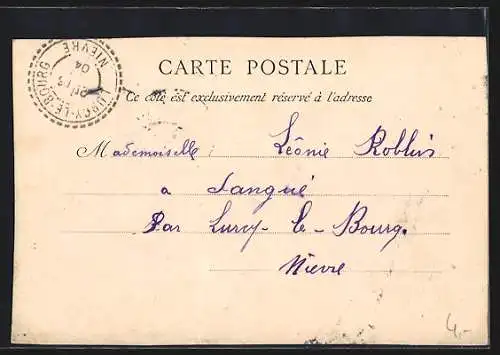 CARTE POSTALE
Ce côté est exclusivement réservé à l'adresse
LURCY-LE-BOURG
NIEVRE
04
Mademoiselle Léonie
a Sangué
Par Lurcy-le-Bourg.
Nievre
4.-